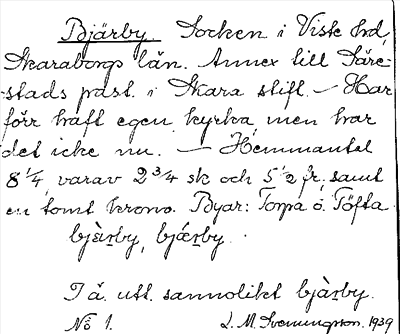 Bjärby. Socken i Viste hrd,
Skaraborgs län. Annex till Säre-
-stads past. i Skara stift. — Har
förr haft egen kyrka men har
det icke nu. — Hemmantal
8 1/4, varav 2 3/4 sk och 5 1/2 fr. samt
en tomt krono. Byar: Torpa o. Töfta.
bjàrby, bjæ̀rby.
I ä. utt. sannolikt bjàrby.
No 1. L. M. Svenungson. 1939